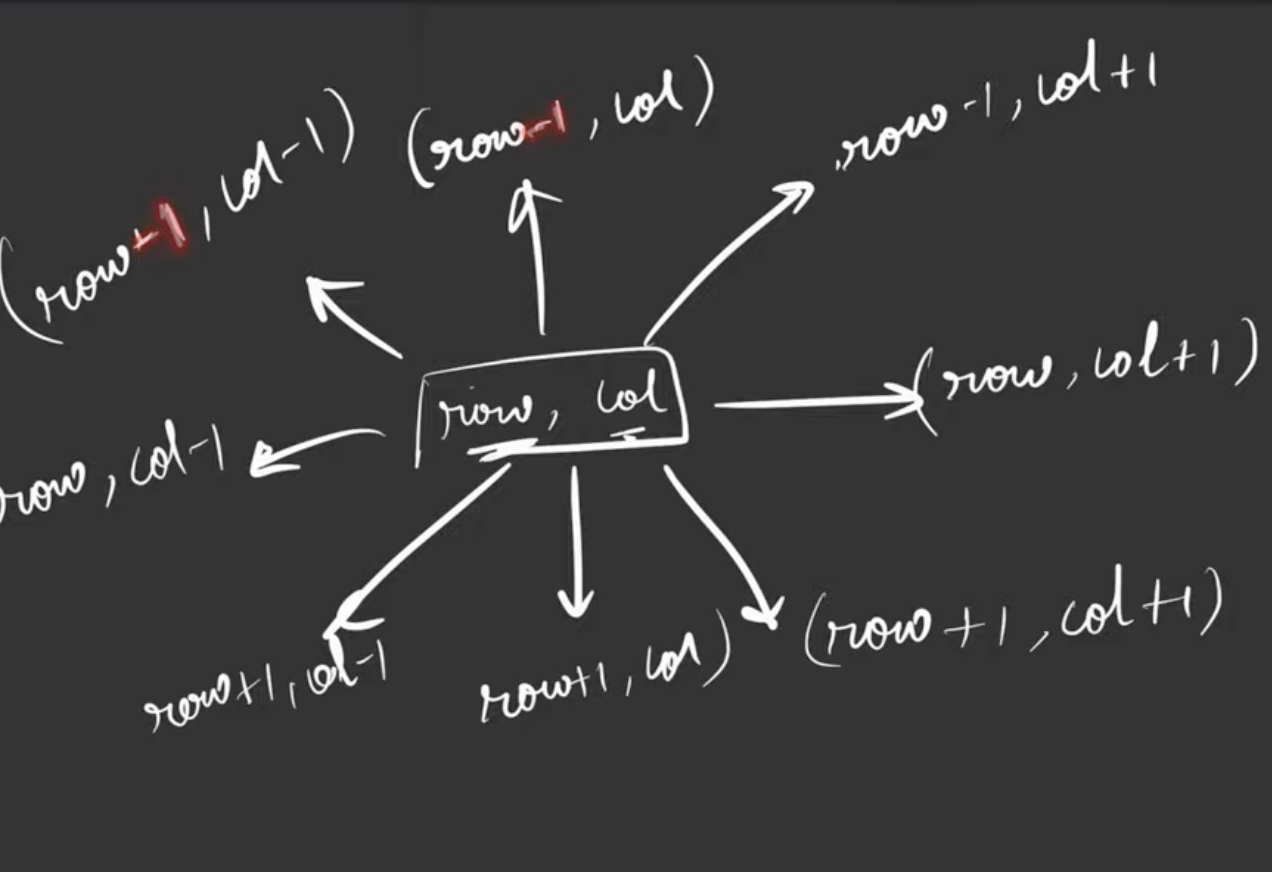 (row-1, col-1)
(row-1, col)
row-1, col+1
row, col-1
row, col
(row, col+1)
row+1, col-1
row+1, col)
(row+1, col+1)